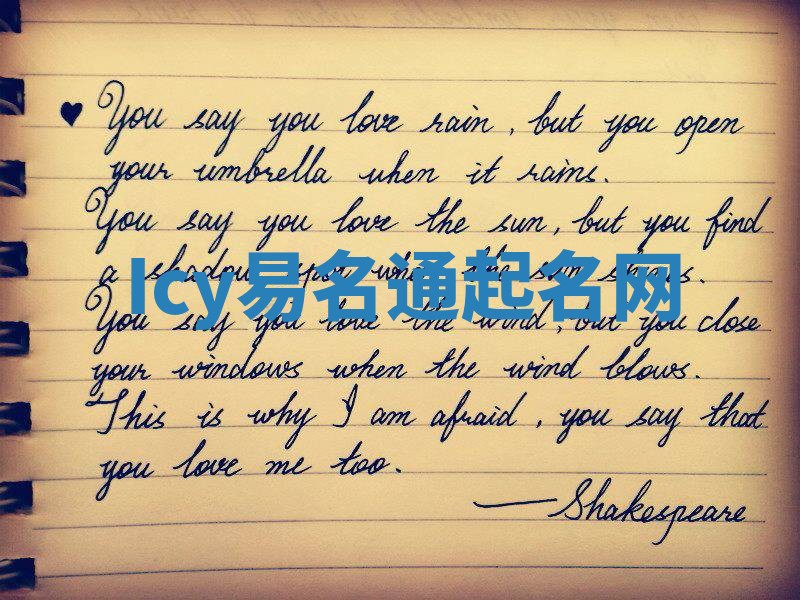 ♥ You say you love rain, but you open
your umbrella when it rains.
You say you love the sun, but you find
a shadow spot when the sun shines.
Icy易名通起名网
You say you love the wind, but you close
your windows when the wind blows.
This is why I am afraid, you say that
you love me too.
—Shakespeare